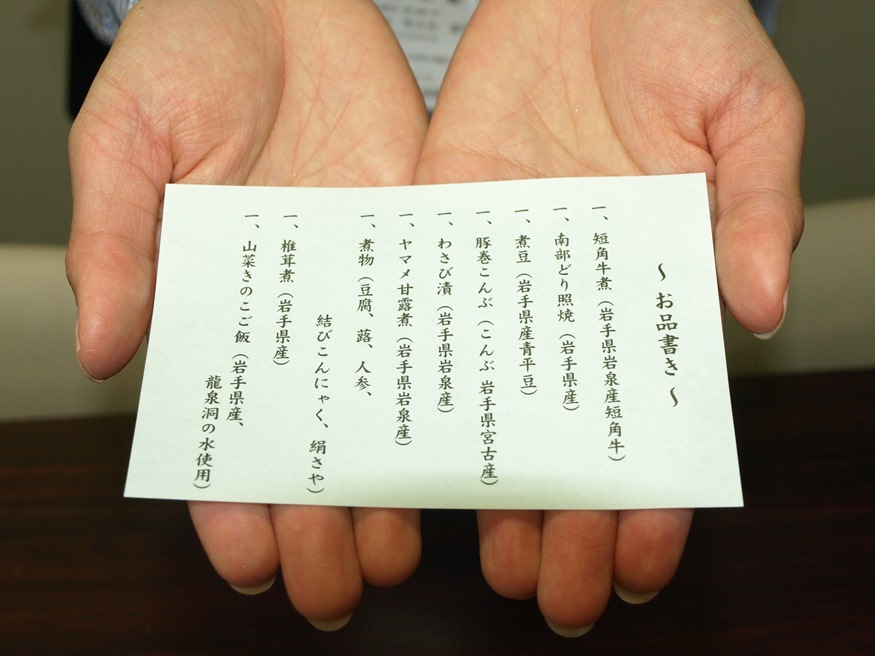 ～お品書き～
一、短角牛煮（岩手県岩泉産短角牛）
一、南部どり照焼（岩手県産）
一、煮豆（岩手県産青平豆）
一、豚巻こんぶ（こんぶ 岩手県宮古産）
一、わさび漬（岩手県岩泉産）
一、ヤマメ甘露煮（岩手県岩泉産）
一、煮物（豆腐、蕗、人参、
結びこんにゃく、絹さや）
一、椎茸煮（岩手県産）
一、山菜きのこご飯（岩手県産、
龍泉洞の水使用）